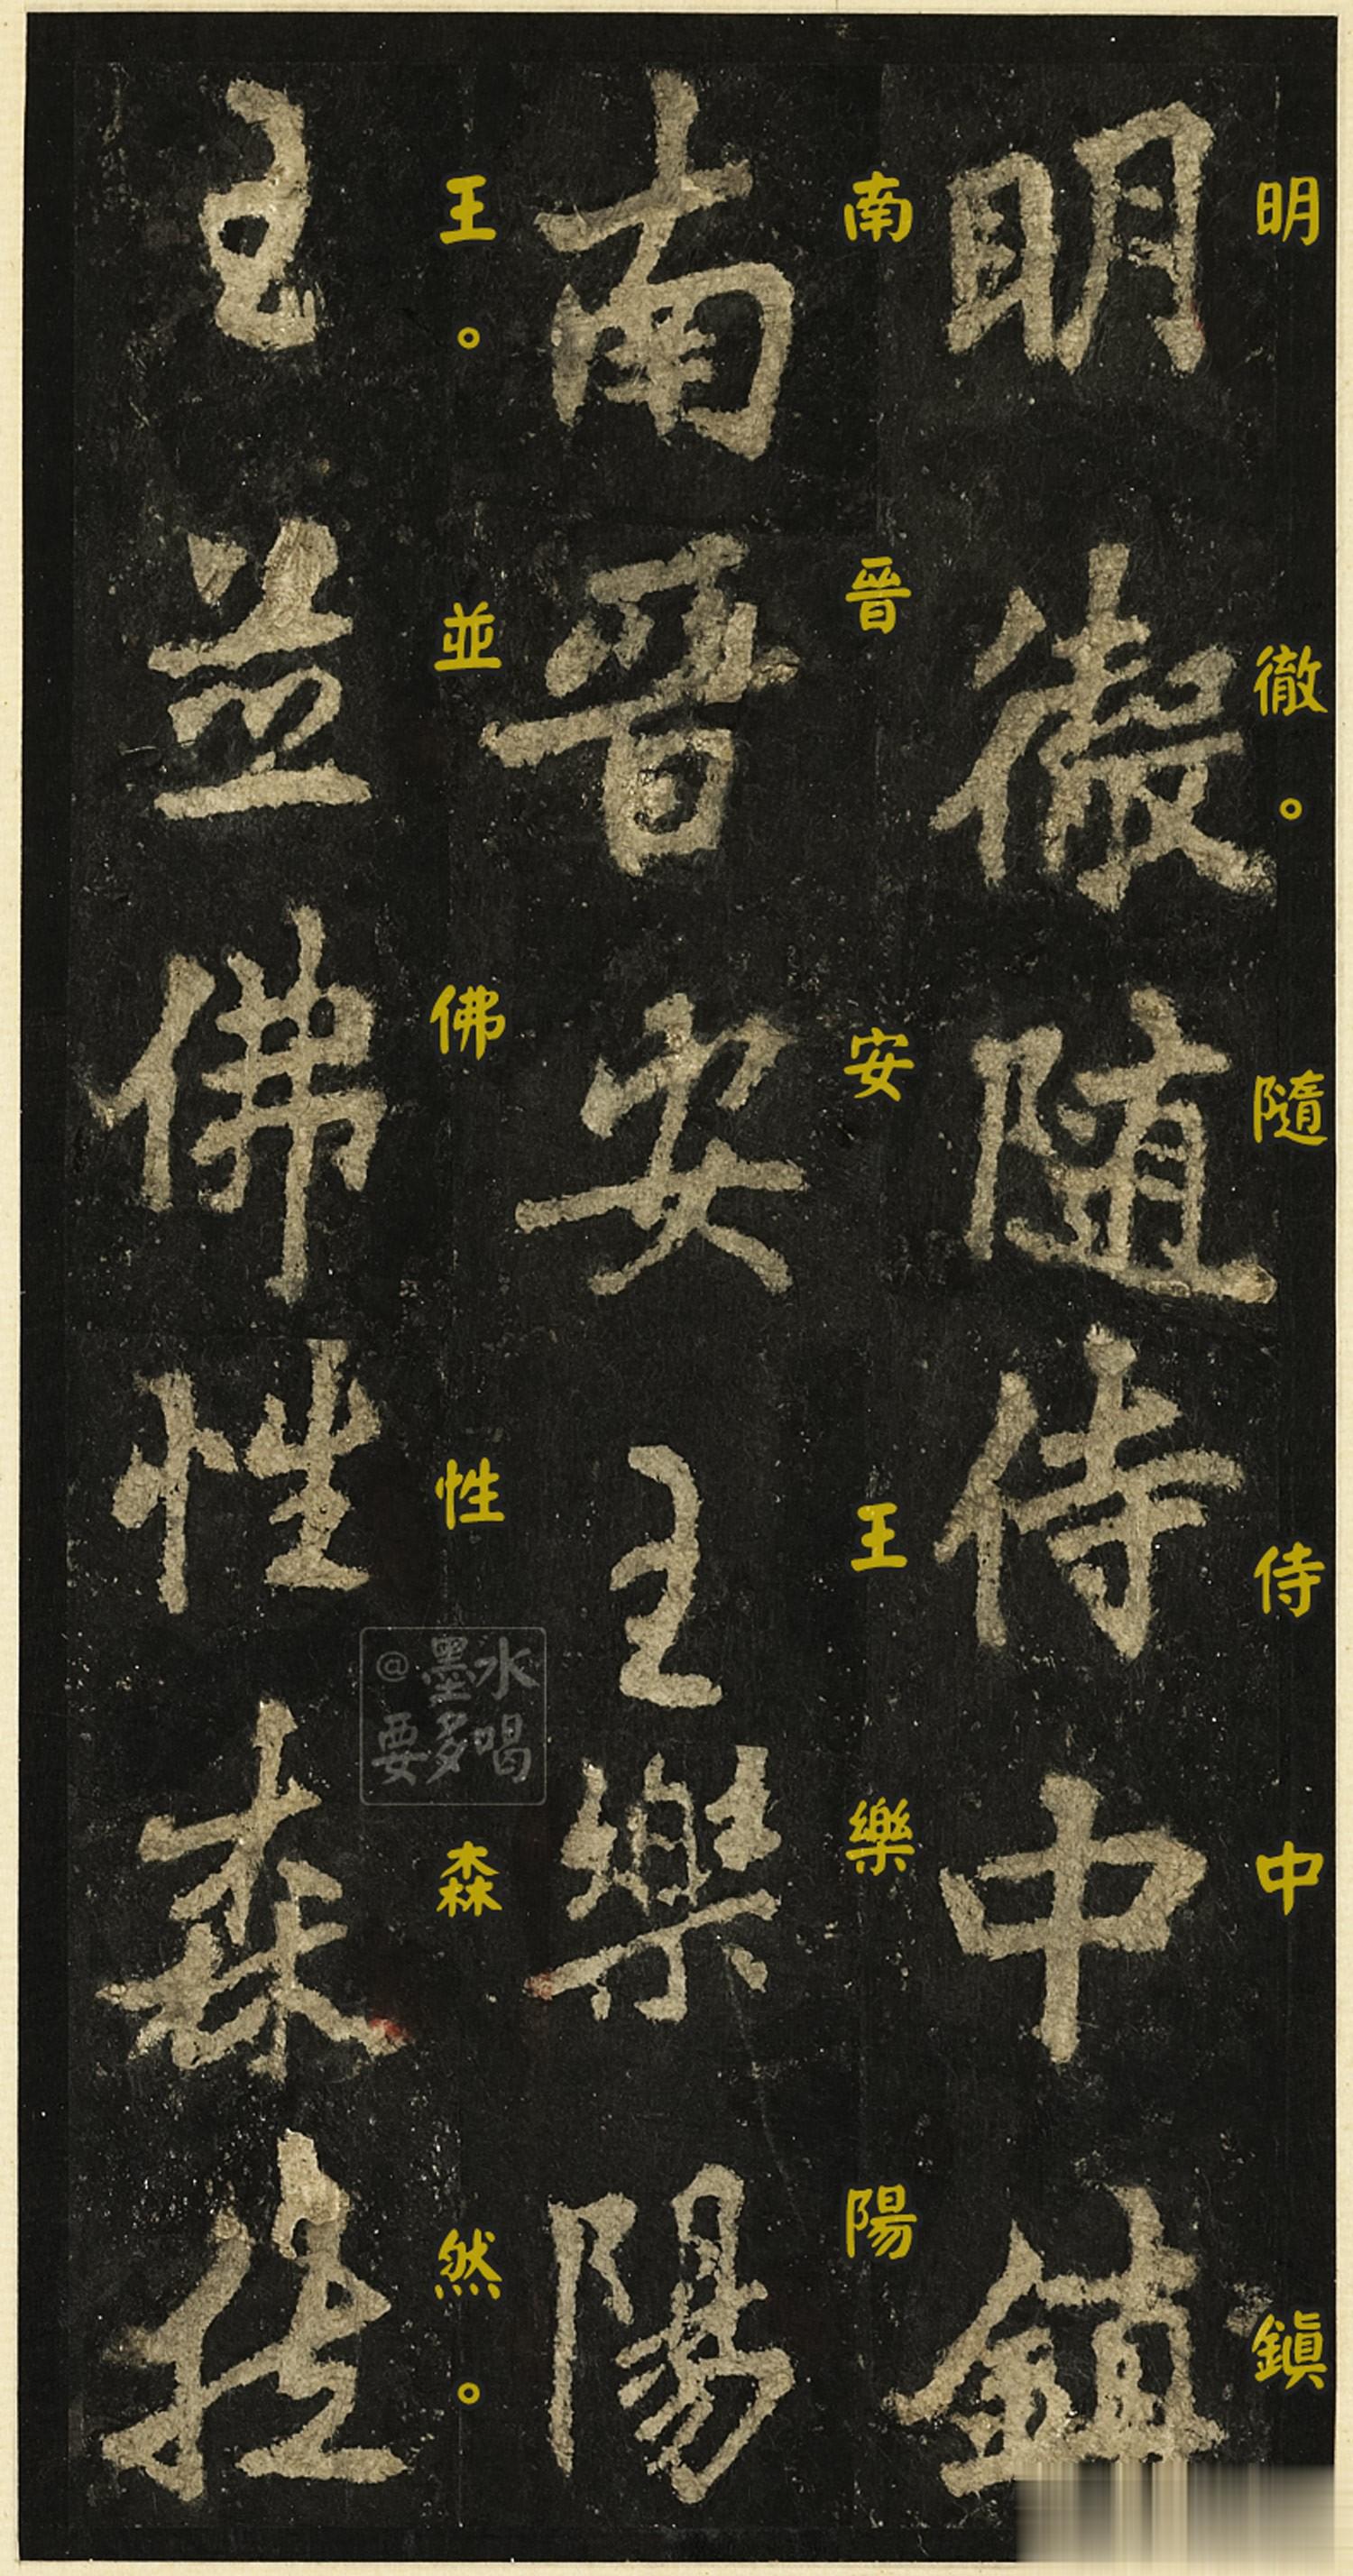 明徹。隨侍中鎮
明徹隨侍中鎮
南晉安王樂陽
南晉安王樂陽
王。並佛性森然。
王並佛性森挺
@墨水
要多喝